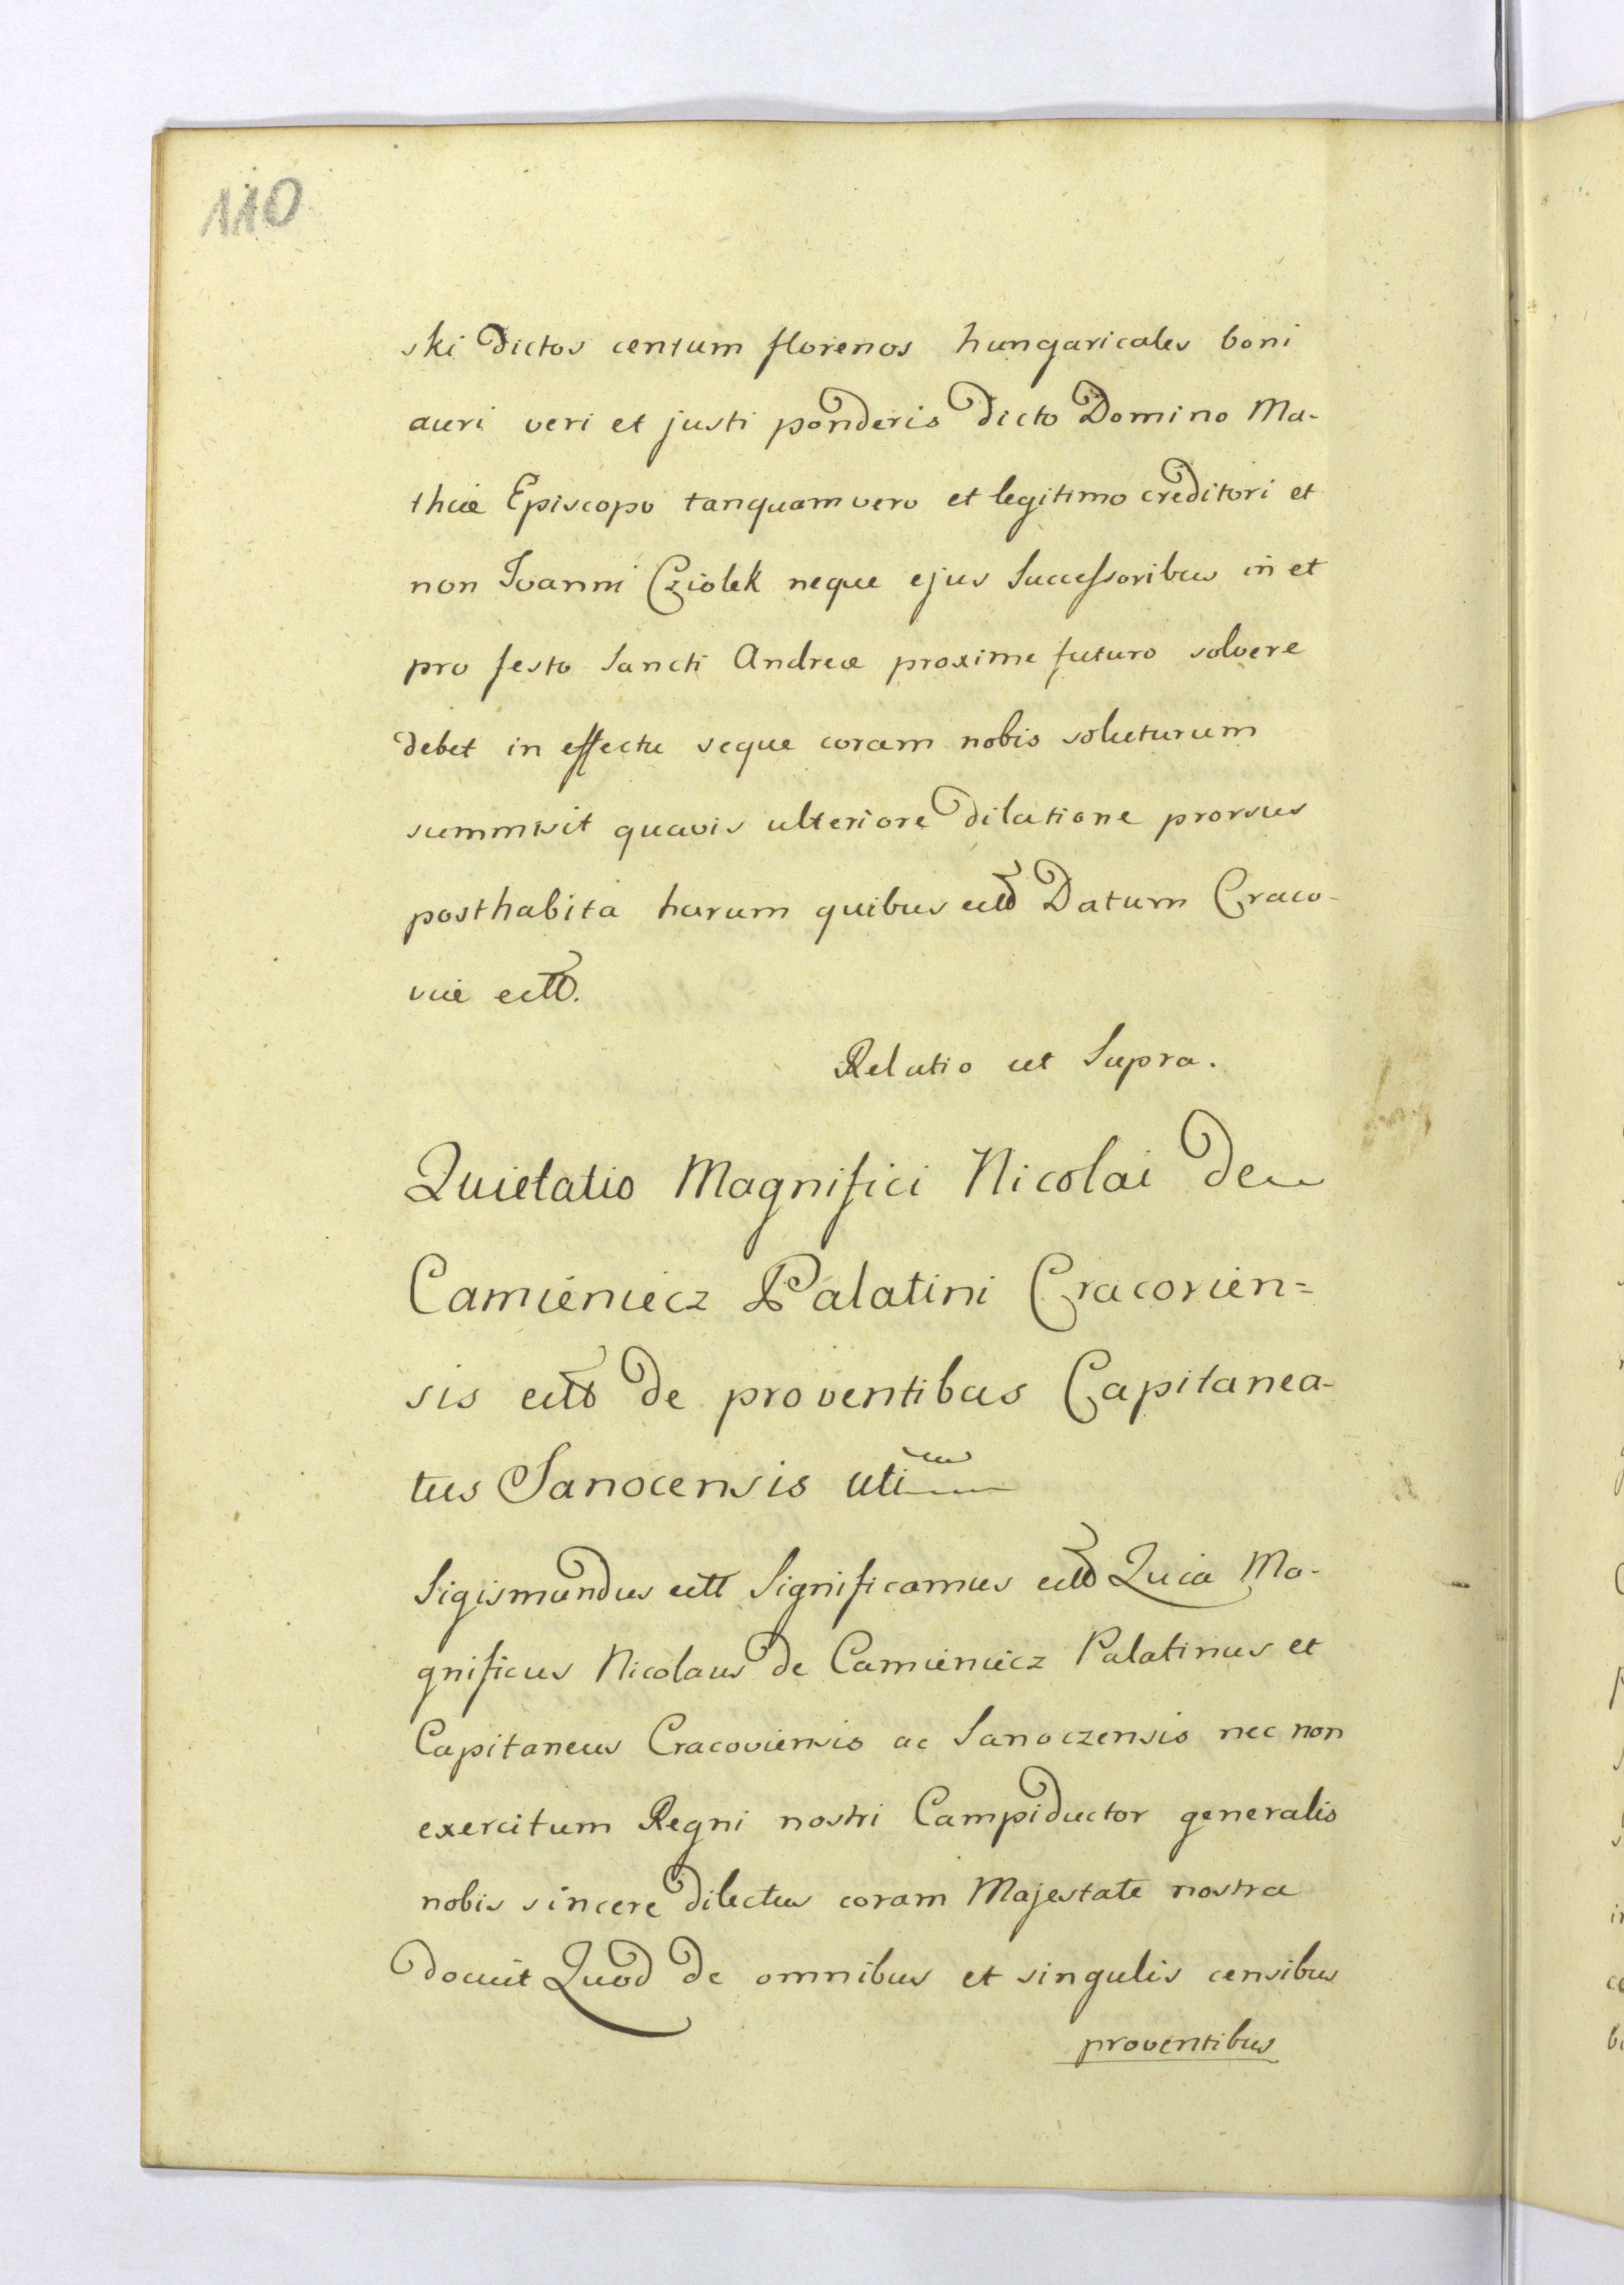 110
ski dictos centum florenos hungaricales boni
auri veri et justi ponderis dicto Domino Ma-
thiæ Episcopo tanquam vero et legitimo creditori et
non Ioanni Cziolek neque ejus Successoribus in et
pro festo Sancti Andreæ proxime futuro solvere
debet in effectu seque coram nobis soluturum
summisit quavis ulteriore dilatione prorsus
posthabita harum quibus ettð Datum Craco-
viæ ettð.
Relatio ut Supra.
Quietatio Magnifici Nicolai de
Camieniecz Palatini Cracovien=
sis ettð de proventibus Capitanea-
tus Sanocensis uti
Sigismundus ett Significamus ettð Quia Ma-
gnificus Nicolaus de Camieniecz Palatinus et
Capitaneus Cracoviensis ac Sanoczensis nec non
exercitum Regni nostri Campiductor generalis
nobis sincere dilectus coram Majestate nostra
docuit Quod de omnibus et singulis censibus
proventibus